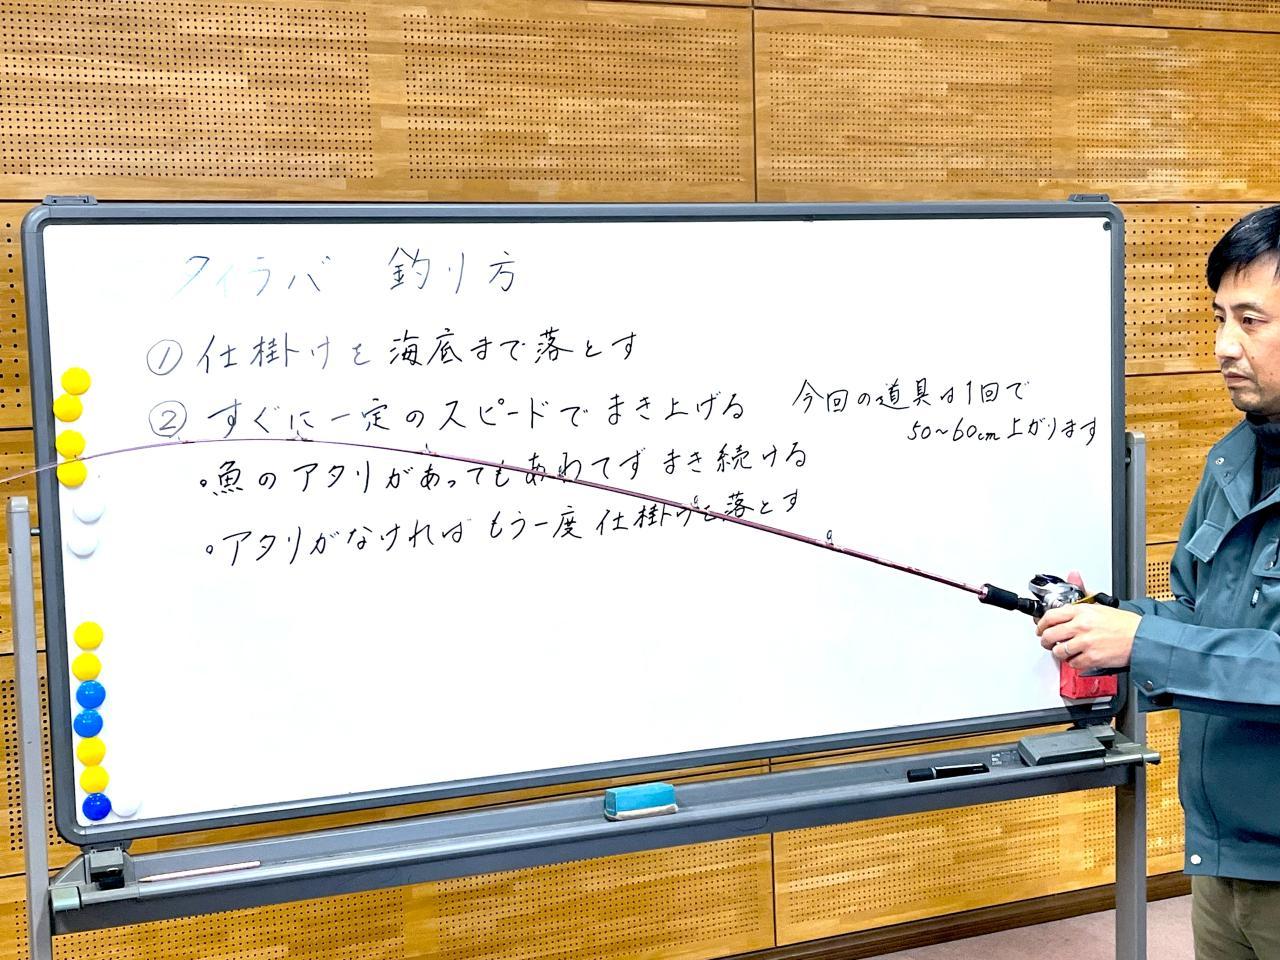 タイラバ 釣り方
① 仕掛けを海底まで落とす
② すぐに一定のスピードでまき上げる
今回の道具は1回で
50~60cm上がります
・魚のアタリがあってもあわてずまき続ける
・アタリがなければもう一度仕掛けを落とす